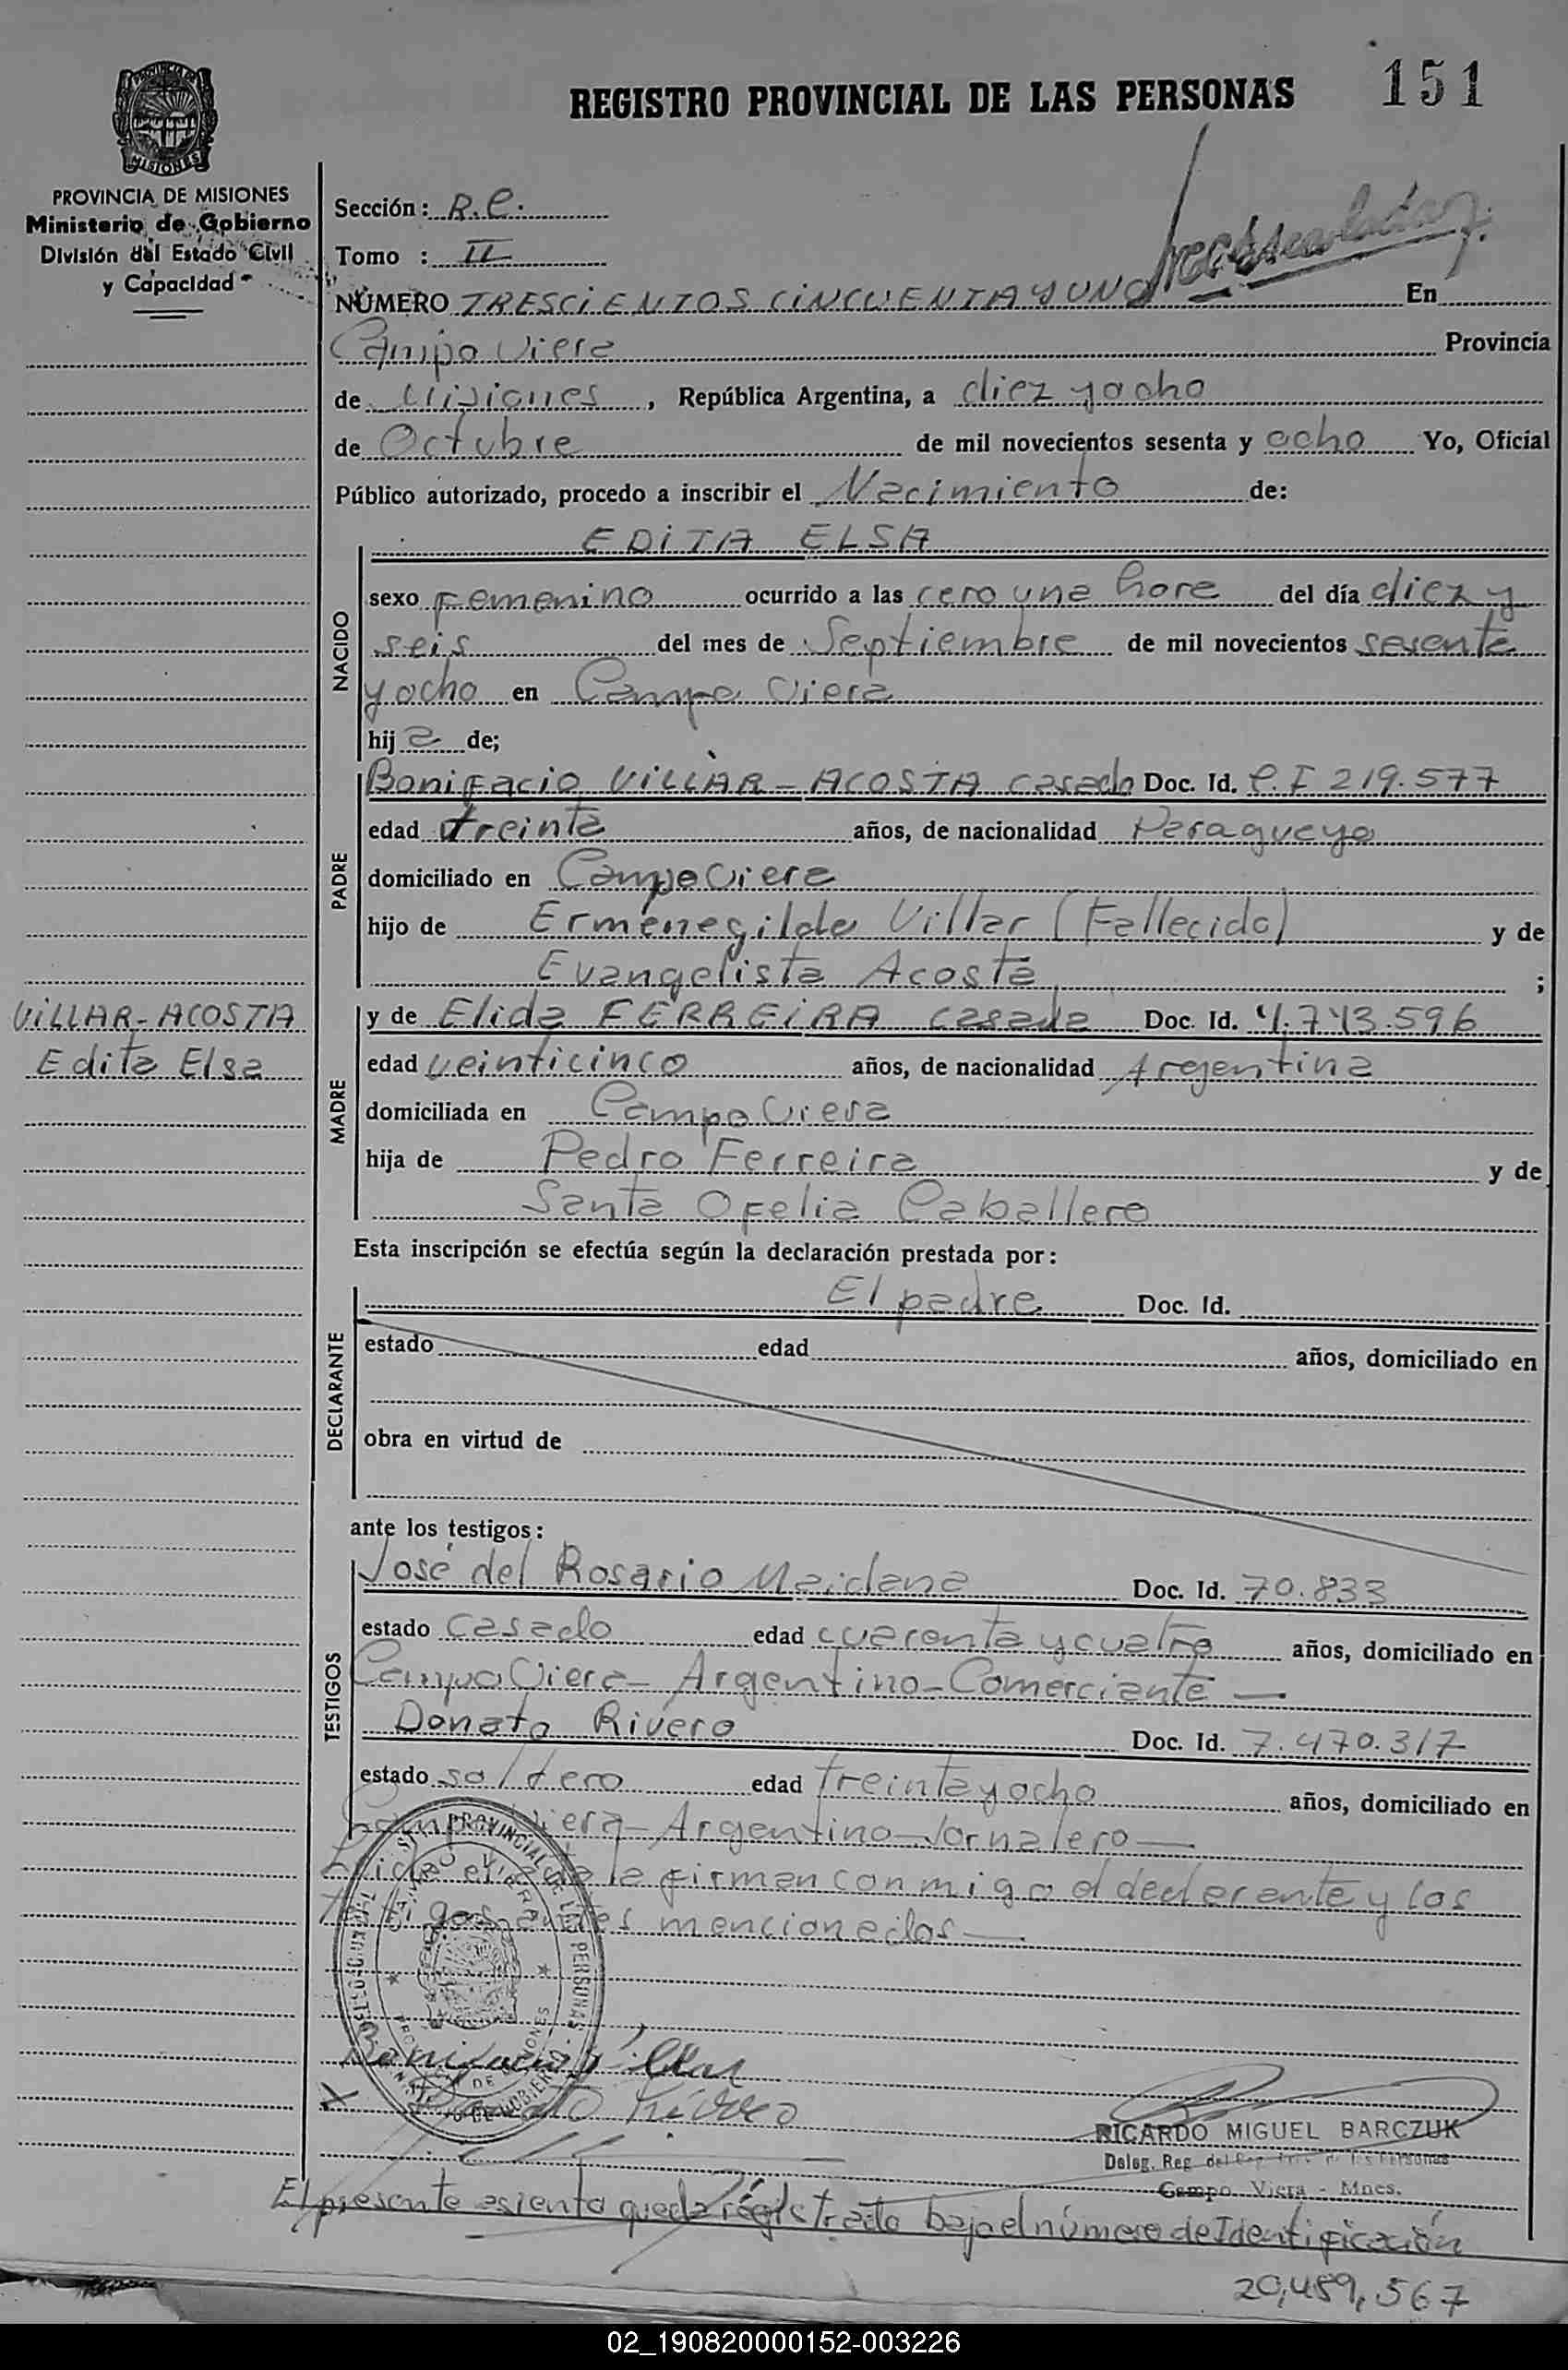 REGISTRO PROVINCIAL DE LAS PERSONAS 151
PROVINCIA DE MISIONES
Ministerio de Gobierno
División del Estado Civil
y Capacidad
Sección: R.C.
Tomo : II
NÚMERO TRESCIENTOS CINCUENTA Y UNO En
Campo Viera Provincia
de Misiones, República Argentina, a diez y ocho
de Octubre de mil novecientos sesenta y ocho Yo, Oficial
Público autorizado, procedo a inscribir el Nacimiento de:
EDITA ELSA
NACIDO
sexo Femenino ocurrido a las cero una hora del día diez y
seis del mes de Septiembre de mil novecientos sesenta
y ocho en Campo Viera
hija de;
PADRE
Bonifacio VILLAR-ACOSTA casado Doc. Id. C.I 219.577
edad treinta años, de nacionalidad Paraguaya
domiciliado en Campo Viera
hijo de Ermenegildo Villar (Fallecido) y de
Evangelista Acosta ;
VILLAR-ACOSTA
Edita Elsa
MADRE
y de Elida FERREIRA casada Doc. Id. 4.743.596
edad veinticinco años, de nacionalidad Argentina
domiciliada en Campo Viera
hija de Pedro Ferreira y de
Santa Ofelia Caballero
Esta inscripción se efectúa según la declaración prestada por:
DECLARANTE
El padre Doc. Id.
estado edad años, domiciliado en
obra en virtud de
ante los testigos:
TESTIGOS
José del Rosario Maidana Doc. Id. 70.833
estado casado edad cuarenta y cuatro años, domiciliado en
Campo Viera- Argentino- Comerciante —
Donato Rivero Doc. Id. 7.470.317
estado soltero edad treinta y ocho años, domiciliado en
Campo Viera- Argentino-Jornalero —
Leida el acta la firman conmigo el declarante y los
testigos antes mencionados —
Bonifacio Villar
Donato Rivero
RICARDO MIGUEL BARCZUK
Deleg. Reg. del Reg. Prov. de las Personas
Campo Viera - Mnes.
El presente asiento queda registrado bajo el número de Identificación
20,459,567
02_190820000152-003226